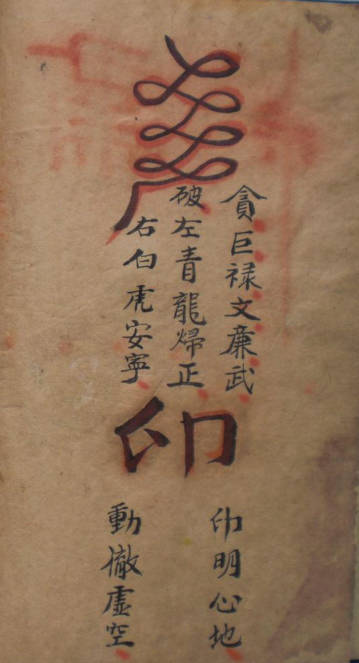 貪巨禄文廉武
破左青龍歸正
右白虎安寧
印
印明心地
動徹虛空